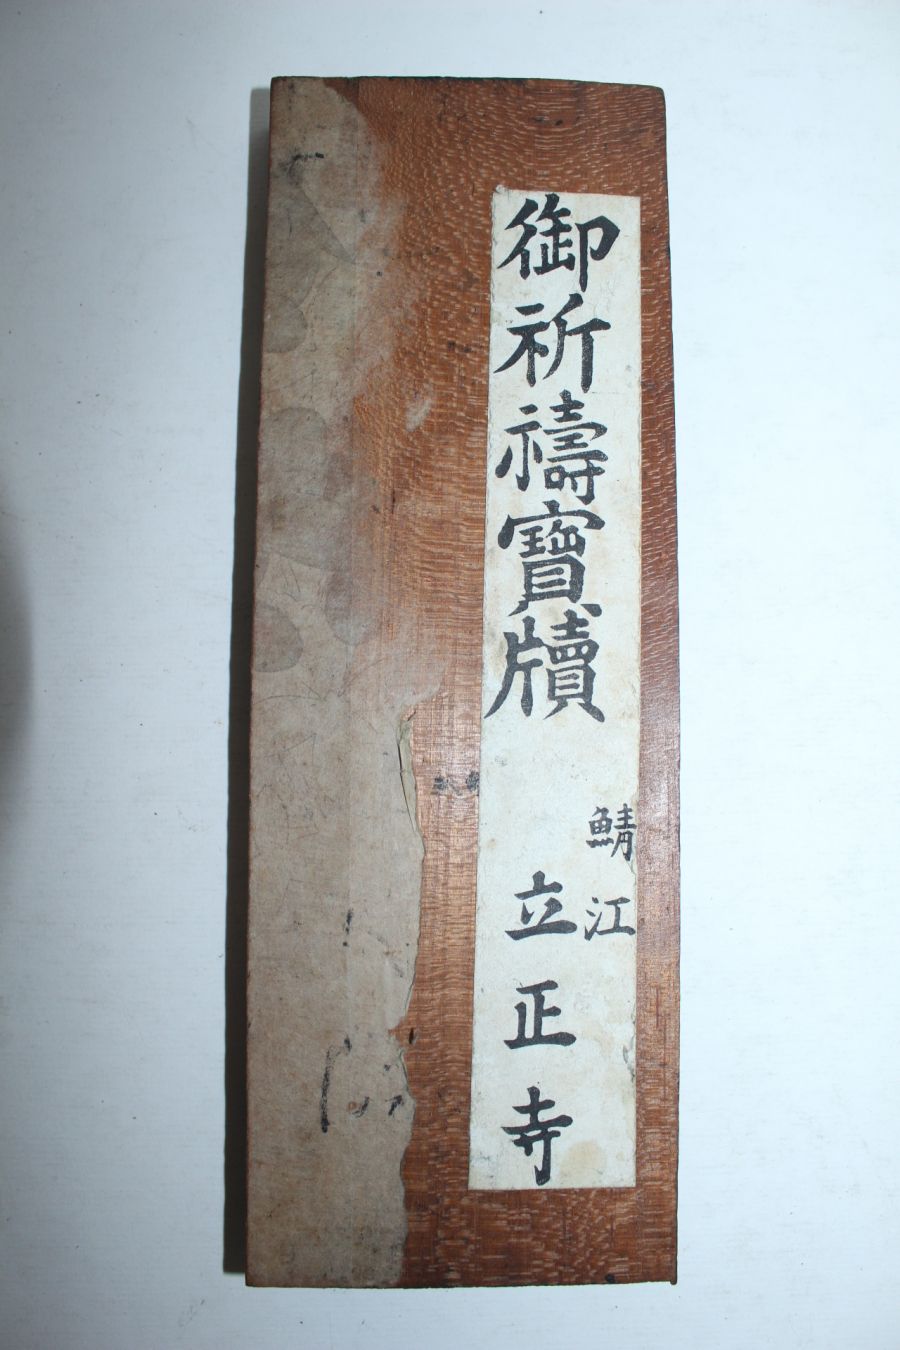 御祈禱寶牘
鯖江
立正寺